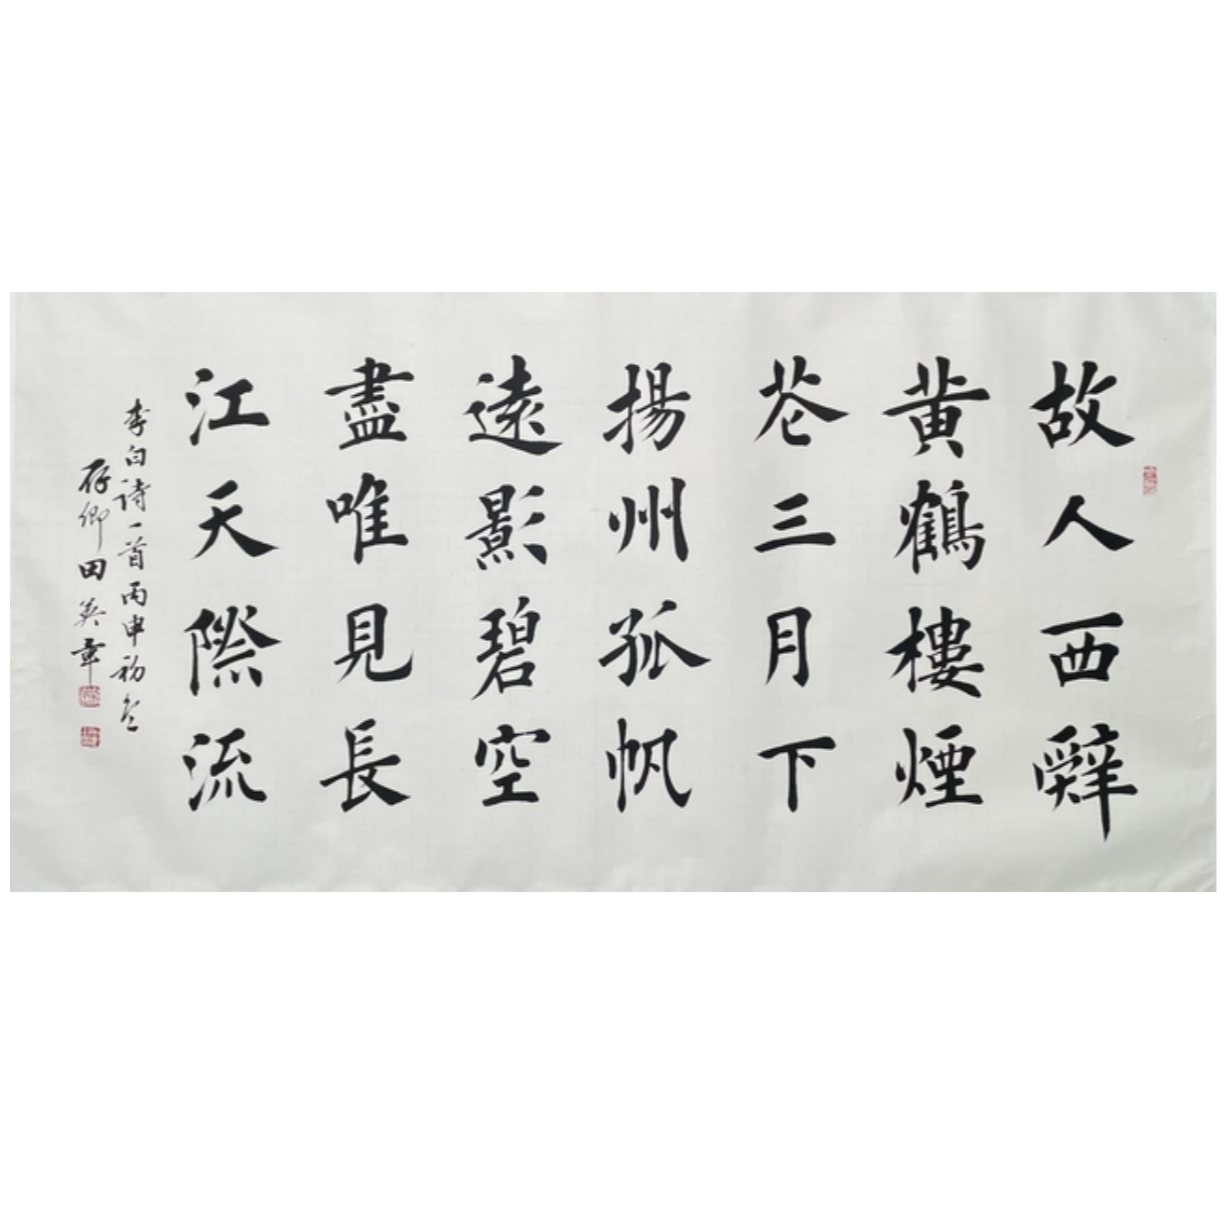 故人西辭
黃鶴樓煙
花三月下
揚州孤帆
遠影碧空
盡唯見長
江天際流
李白詩一首丙申初冬
存卿田英章